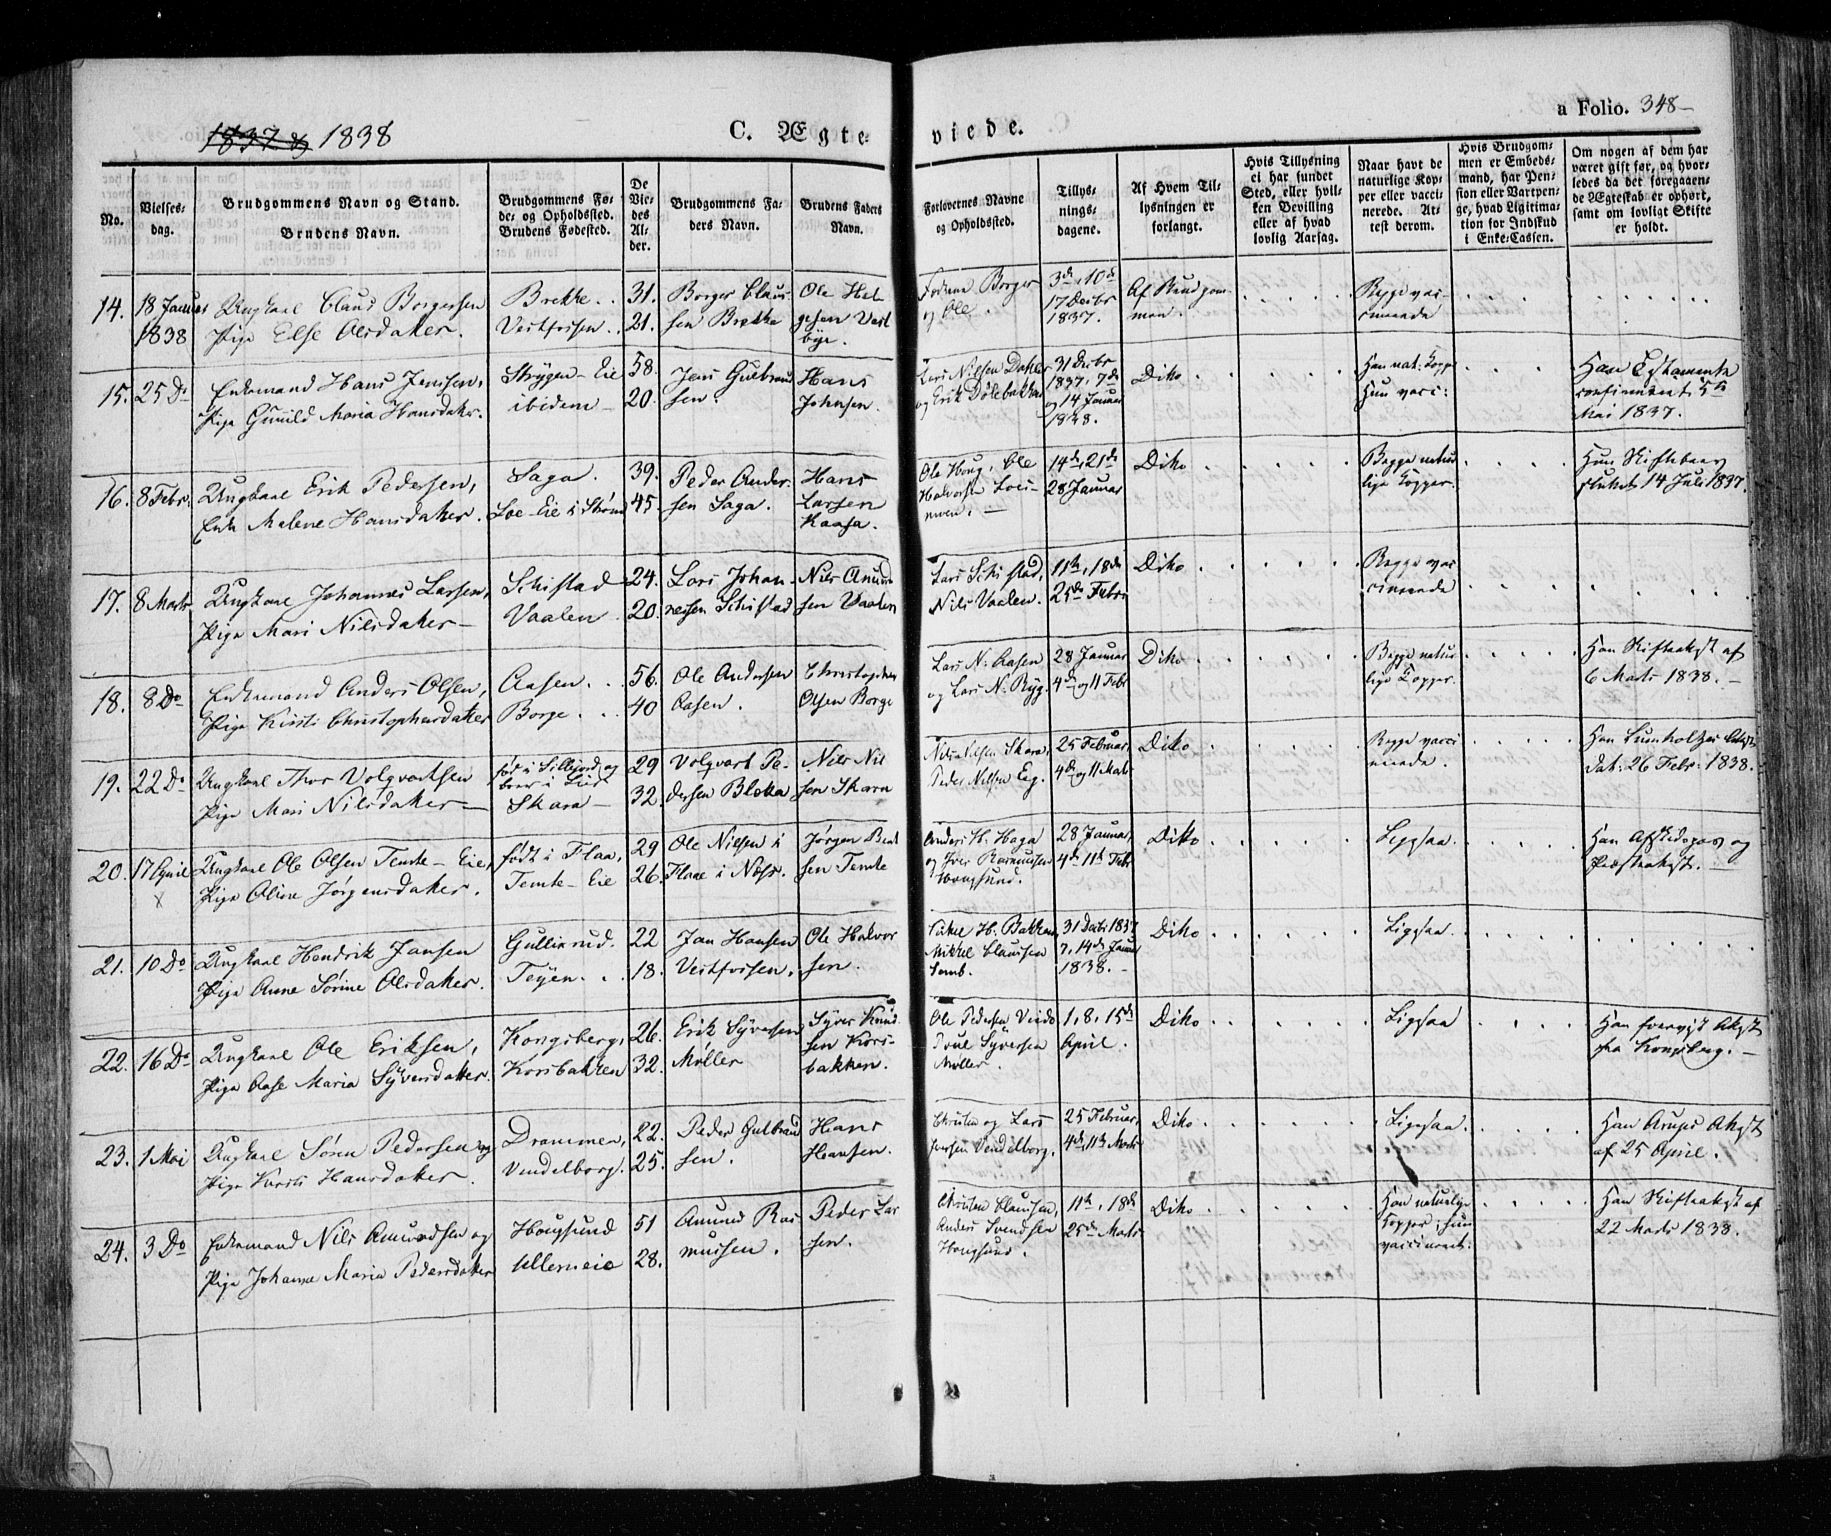 1837 & 1838
C. Ægte
viede.
a Folio. 348
No.
Vielses-
dag.
Brudgommens Navn og Stand.
Brudens Navn.
Brudgommens Fø-
de- og Opholdssted.
Brudens Fødested.
De
Vie-
des
Al-
der.
Brudgommens Fa-
ders Navn.
Brudens Faders
Navn.
Forlovernes Navne
og Opholdssted.
Tillys-
nings-
dagene.
Af Hvem Til-
lysningen er
forlangt.
Hvis Tillysning
ei har fundet
Sted, eller hvil-
ken Bevilling
eller af hvad
lovlig Aarsag.
Naar havt de
naturlige Kop-
per eller vacci-
nerede. At-
test derom.
Hvis Brudgom-
men er Embeds-
mand, har Pen-
sion eller Vartpen-
ge, hvad Legitima-
tion for Indskud
i Enke-Cassen.
Om nogen af dem har
været gift før, og hvor-
ledes da det foregaaen-
de Ægteskab er ophørt,
samt om lovligt Skifte
er holdt.
14. 18 Januar
1838
Ungkarl Claus Borgersen
Pige Else Olsdatter.
Brekke
Vestfossen
31.
21.
Borger Claus-
sen Brekke
Ole Hel-
gesen Vest-
bye.
Fædrene Borger
og Ole.
3de, 10de
17 Decbr
1837.
Af Brudgom-
men.
Begge vac-
cinerede
15. 25 Do
Enkemand Hans Jensen,
Pige Gunild Maria Hansdatter.
Strygen-Eie
ibidem
58.
20.
Jens Gulbrand-
sen.
Hans
Johnsen.
Lars Nilsen Dahler
og Erik Dølebakken
31 Decbr
1837, 7de
og 14 Januar
1838.
Diko
Han nat. Kopp.
Hun vacc:
Han Testamente
confirmeret 5te
Mai 1837.
16. 8 Febr.
Ungkarl Erik Pedersen,
Enke Malene Hansdatter.
Saga.
Loe-Eie i Strøm
39.
45.
Peder Ander-
sen Saga.
Hans
Larsen
Kaasa.
Ole Houg, Ole
Halvorsen Loes-
moen.
14de, 21de
28 Januar
Diko
Begge natur-
lige Kopper.
Hun Skiftebrev
sluttet 14 Juli 1837.
17. 8 Marts
Ungkarl Johannes Larsen,
Pige Mari Nilsdatter
Schistad
Vaalen
24.
20.
Lars Johan-
nessen Schistad
Nils Amund-
sen Vaalen
Lars Schistad,
Nils Vaalen.
11te, 18de
25de Febr
Diko
Begge vac-
cinerede
18. 8 Do
Enkemand Anders Olsen,
Pige Kirsti Christophersdatter
Aasen.
Borge
56.
40
Ole Andersen
Aasen.
Christopher
Olsen Borge
Lars N. Aasen
og Lars N. Byg.
28 Januar
4de og 11 Febr
Diko
Begge natur-
lige Kopper.
Han Skifteatst af
6 Marts 1838.
19. 22 Do
Ungkarl Thor Volqvartsen
Pige Mari Nilsdatter
fød i Sillejord og
boer i Lier
Skara
29
32.
Volqvart Pe-
dersen Bloka
Nils Nil-
sen Skara
Nils Nilsen Skara,
Peder Nilsen Eeg.
25 Februar,
4de og 11 Marts
Diko
Begge vacci-
nerede.
Han Lumholtzes Attest
dat: 26 Febr. 1838.
20. 17 April
Ungkarl Ole Olsen Temte-Eie,
Pige Oline Jørgensdatter.
født i Flaa,
Temte-Eie
29
26.
Ole Nilsen i
Flaae i Næs.
Jørgen Bent-
sen Temte
Anders H. Haga
og Iver Rasmussen
Hougsund.
28 Januar,
4de, 11te Febr
Diko
Ligesaa.
Han Afskedspas og
Præsteattst.
21. 10 Do
Ungkarl Hendrik Jansen
Pige Anne Sørine Olsdatter.
Gullixrud.
Tøyen.
22
18.
Jan Hansen
Vestfossen.
Ole Halvor-
sen.
Mikkel Claussen
31 Decbr 1837
7, 14de Januar
1838.
Diko
Ligesaa.
22. 16 Do
Ungkarl Ole Eriksen,
Pige Aase Maria Syversdatter.
Kongsberg,
Korsbakken
26.
32.
Erik Syversen
Møller
Syver Knud-
sen Kors-
bakken.
Ole Pedersen
Poul Syversen
Møller.
1, 8, 15de
April.
Diko
Ligesaa
Han forevist Attst
fra Kongsberg.
23. 1 Mai
Ungkarl Søren Pedersen og
Pige Kirsti Hansdatter.
Drammen,
Vendelborg.
22.
25.
Peder Gulbrand-
sen.
Hans
Hansen.
Christen og Lars
Iversen Vendelborg.
25 Februar,
4de, 11te Marts
Diko
Ligesaa.
Han Arups Attst
af 25 April.
24. 3 Do
Enkemand Nils Amundsen og
Pige Johanne Maria Pedersdatter
Hougsund
Ullerneie
51
28.
Amund Ras-
mussen.
Peder Lar-
sen.
Christen Claussen,
Anders Svendsen
Hougsund.
11te, 18de
25de Marts
Diko
Han naturlige
Kopper; hun
vaccineret.
Han Skifteattst af
22 Marts 1838.